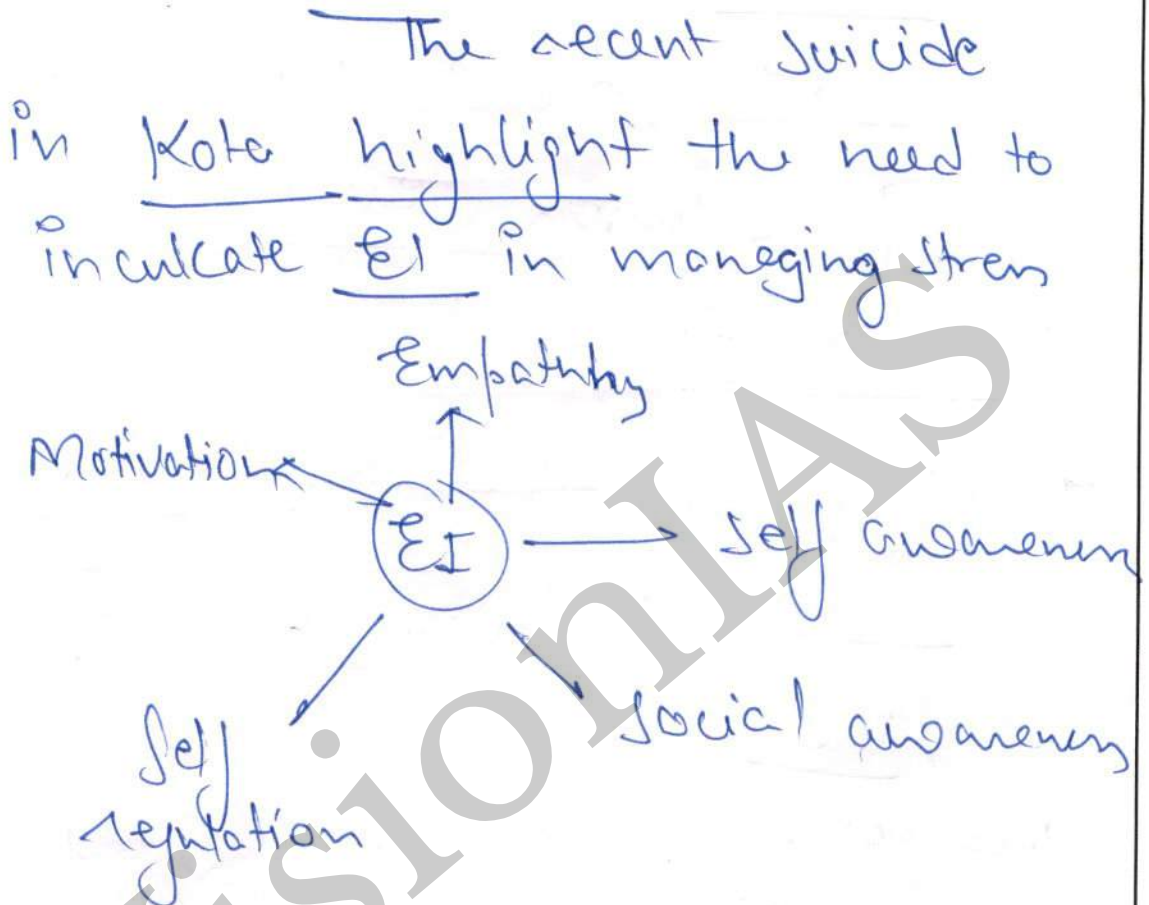 The recent suicide
in Kota highlight the need to
inculcate EI in managing stress
Empathy
Motivation
EI
self awareness
social awareness
Self
regulation
VisionIAS